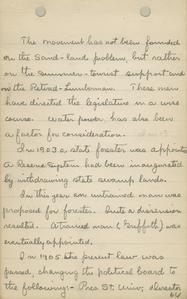 The movement has not been founded
on the Sand-lands problem, but rather
on the summer-tourist support and
on the Retired-Lumberman. These men
have directed the legislature in a wise
course. Water power has also been
a factor for consideration.
In 1903 a state forester was appointed
A Reserve System had been inaugurated
by withdrawing state swamp lands.
In this year an untrained man was
proposed for forester. Quite a discussion
resulted. A trained man (Griffith) was
eventually appointed.
In 1905 the present law was
passed, changing the political board to
the following:- Pres St. Univ; director